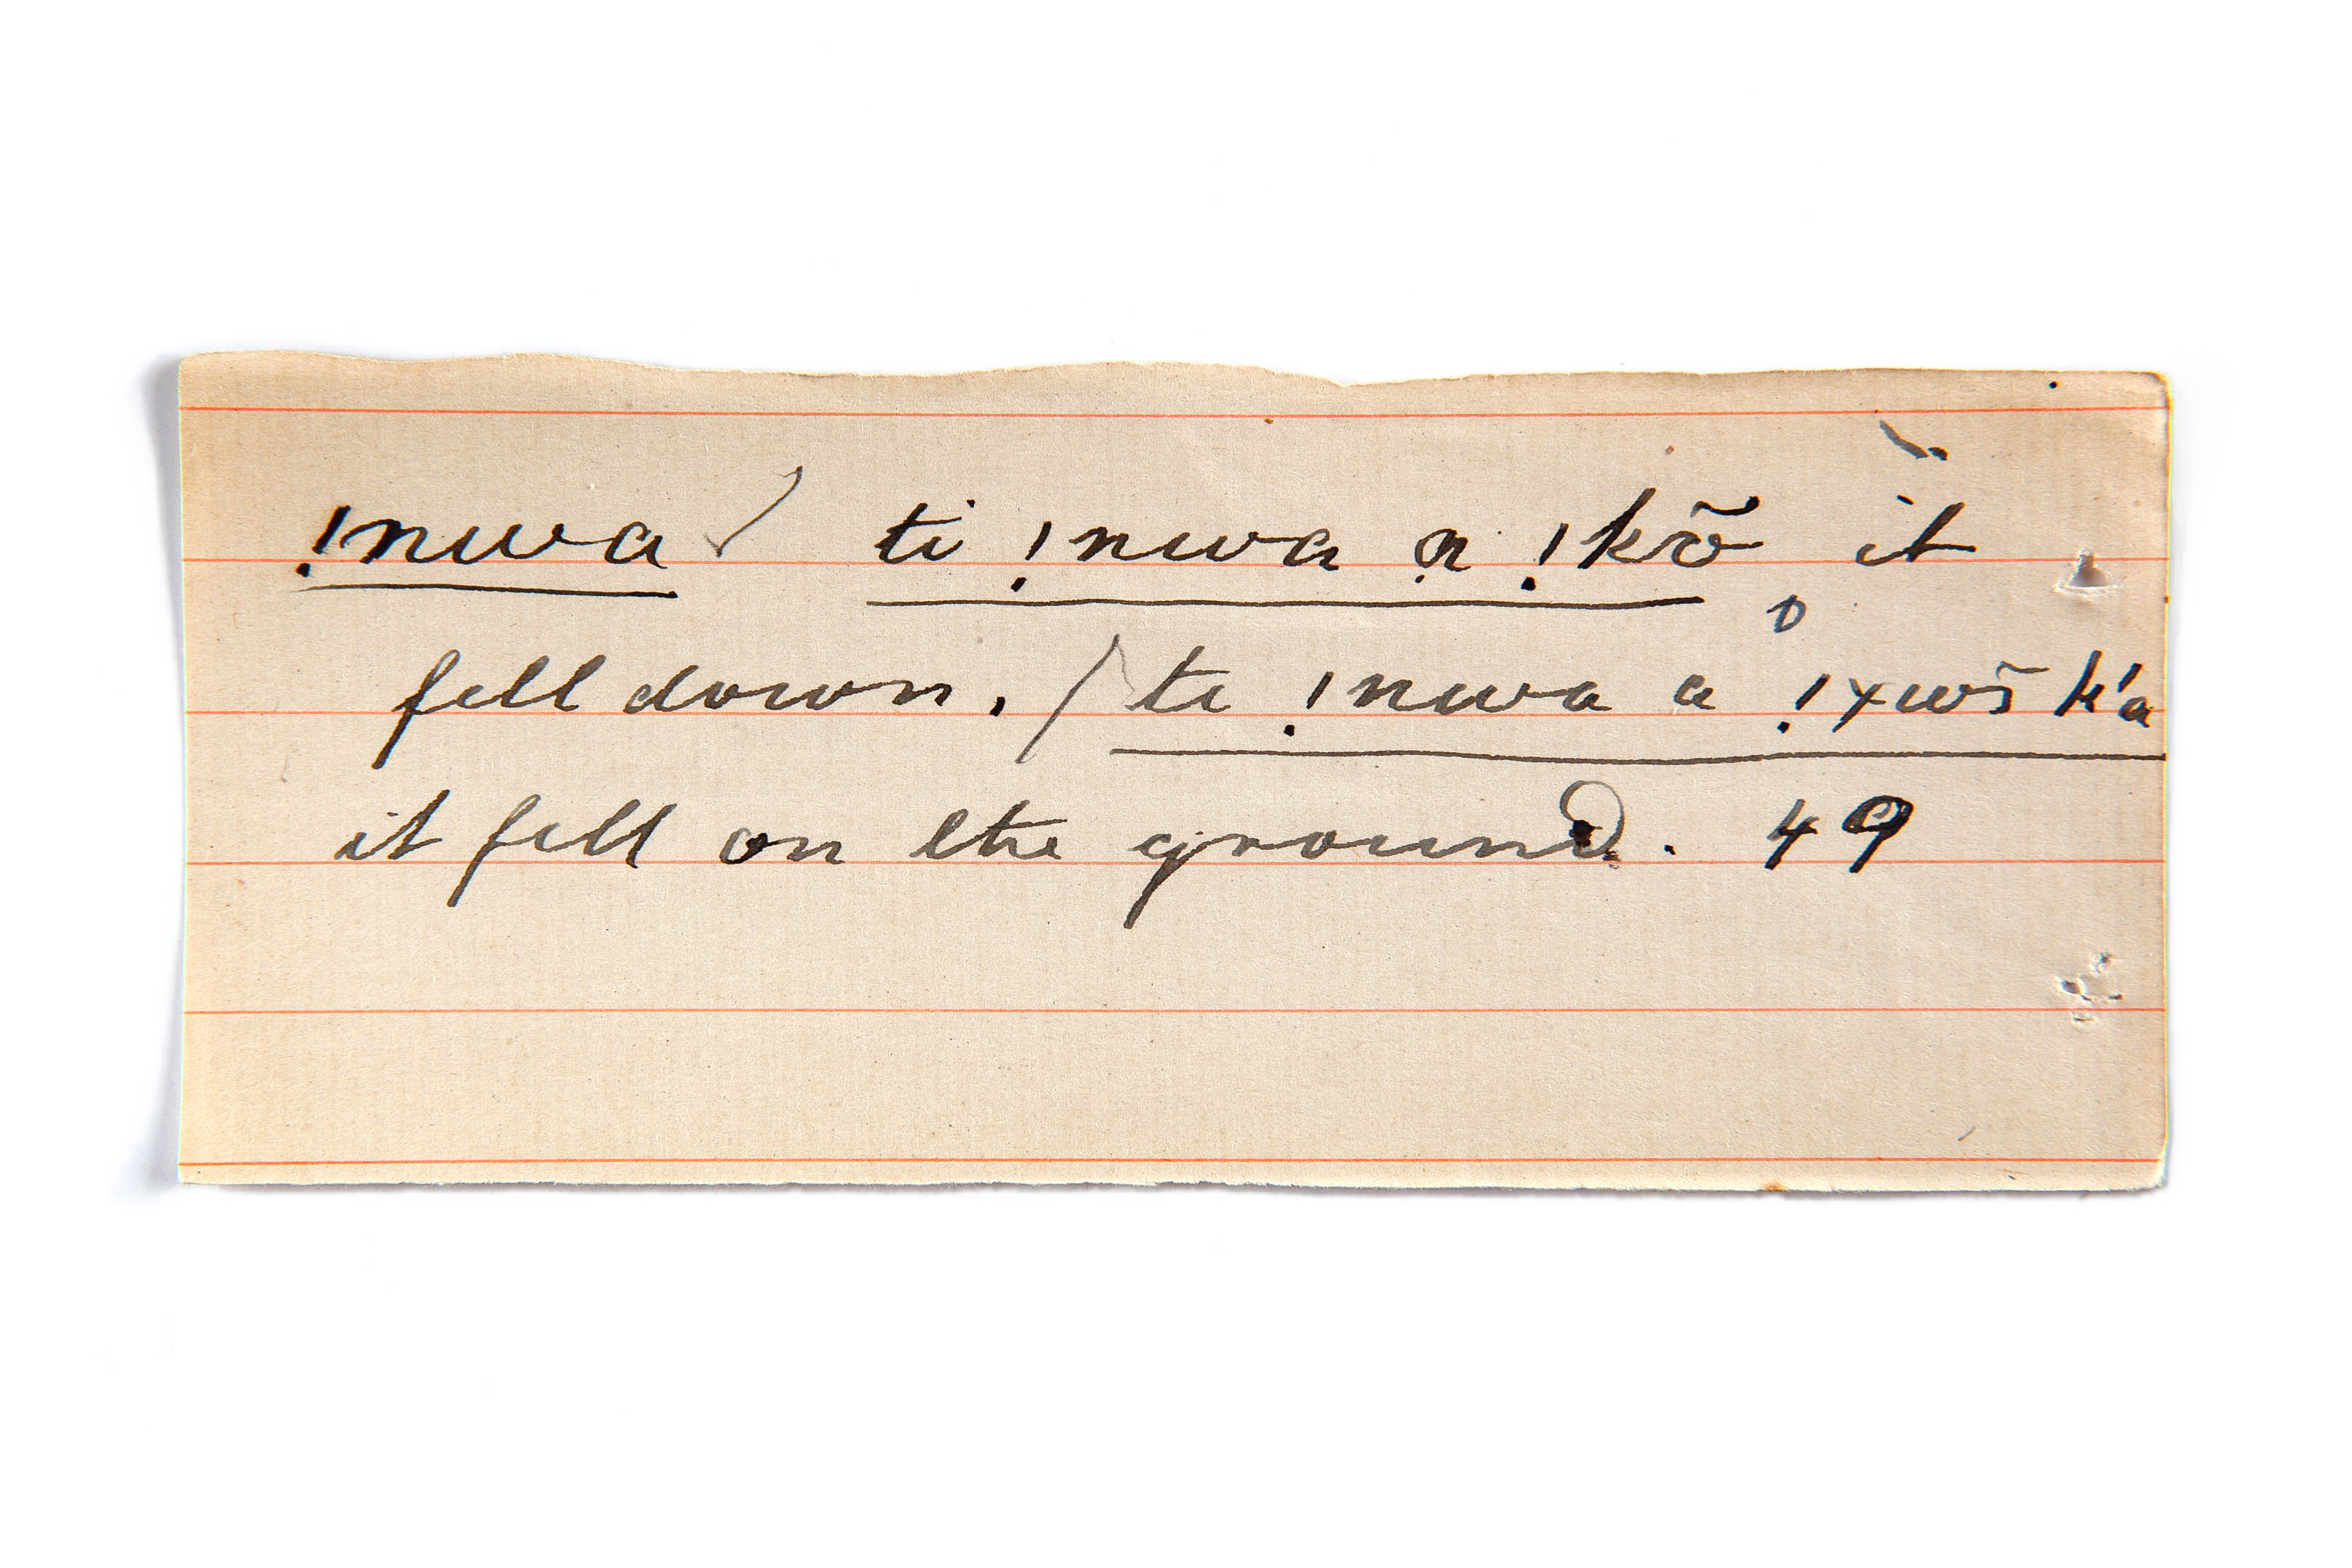 !nwa ti !nwa ạ !kõ it
fell down. / ti !nwa a !xwĩ k'a
it fell on the ground. 49